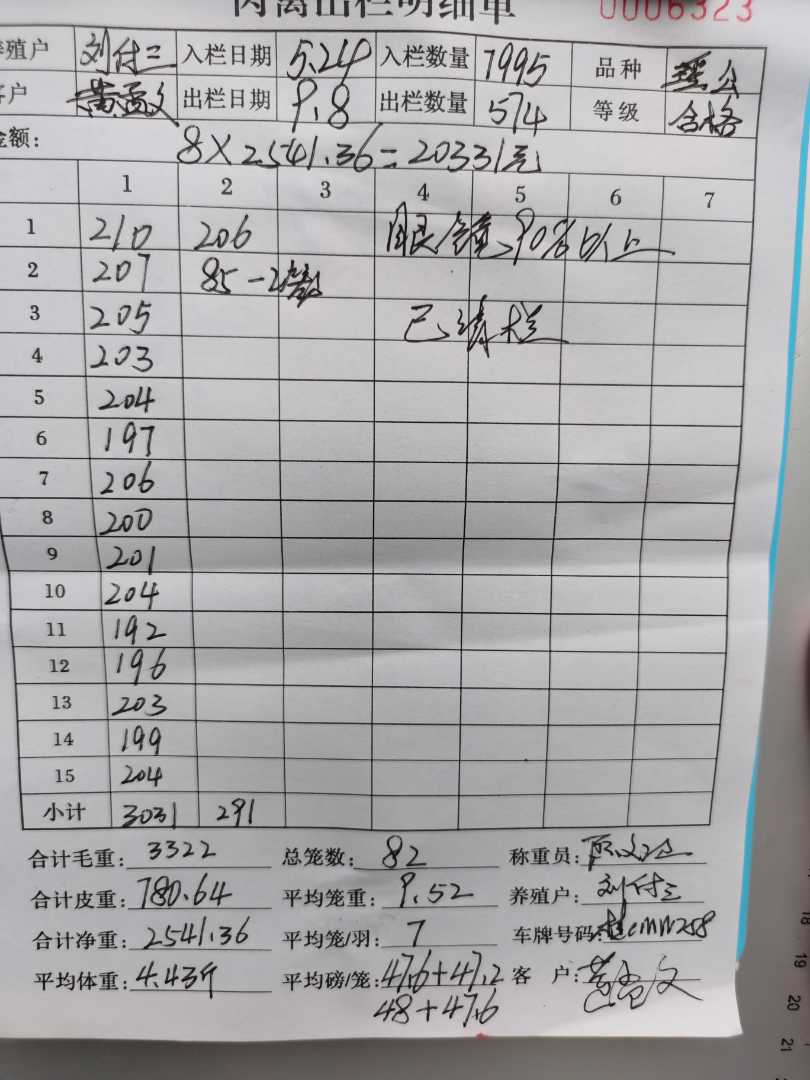 肉禽出栏明细单 0006323
养殖户 刘付三 入栏日期 5.24 入栏数量 7995 品种
客户 出栏日期 9.8 出栏数量 574 等级 合格
金额: 8×2541.36=20331元
1 2 3 4 5 6 7
1 210 206 90%以上
2 207 85-2
3 205 已清栏
4 203
5 204
6 197
7 206
8 200
9 201
10 204
11 192
12 196
13 203
14 199
15 204
小计 3031 291
合计毛重: 3322 总笼数: 82 称重员:
合计皮重: 780.64 平均笼重: 9.52 养殖户: 刘付三
合计净重: 2541.36 平均笼/羽: 7 车牌号码:
平均体重: 4.43斤 平均磅/笼: 47.6+47.2 客 户:
48+47.6
18
19
20
21